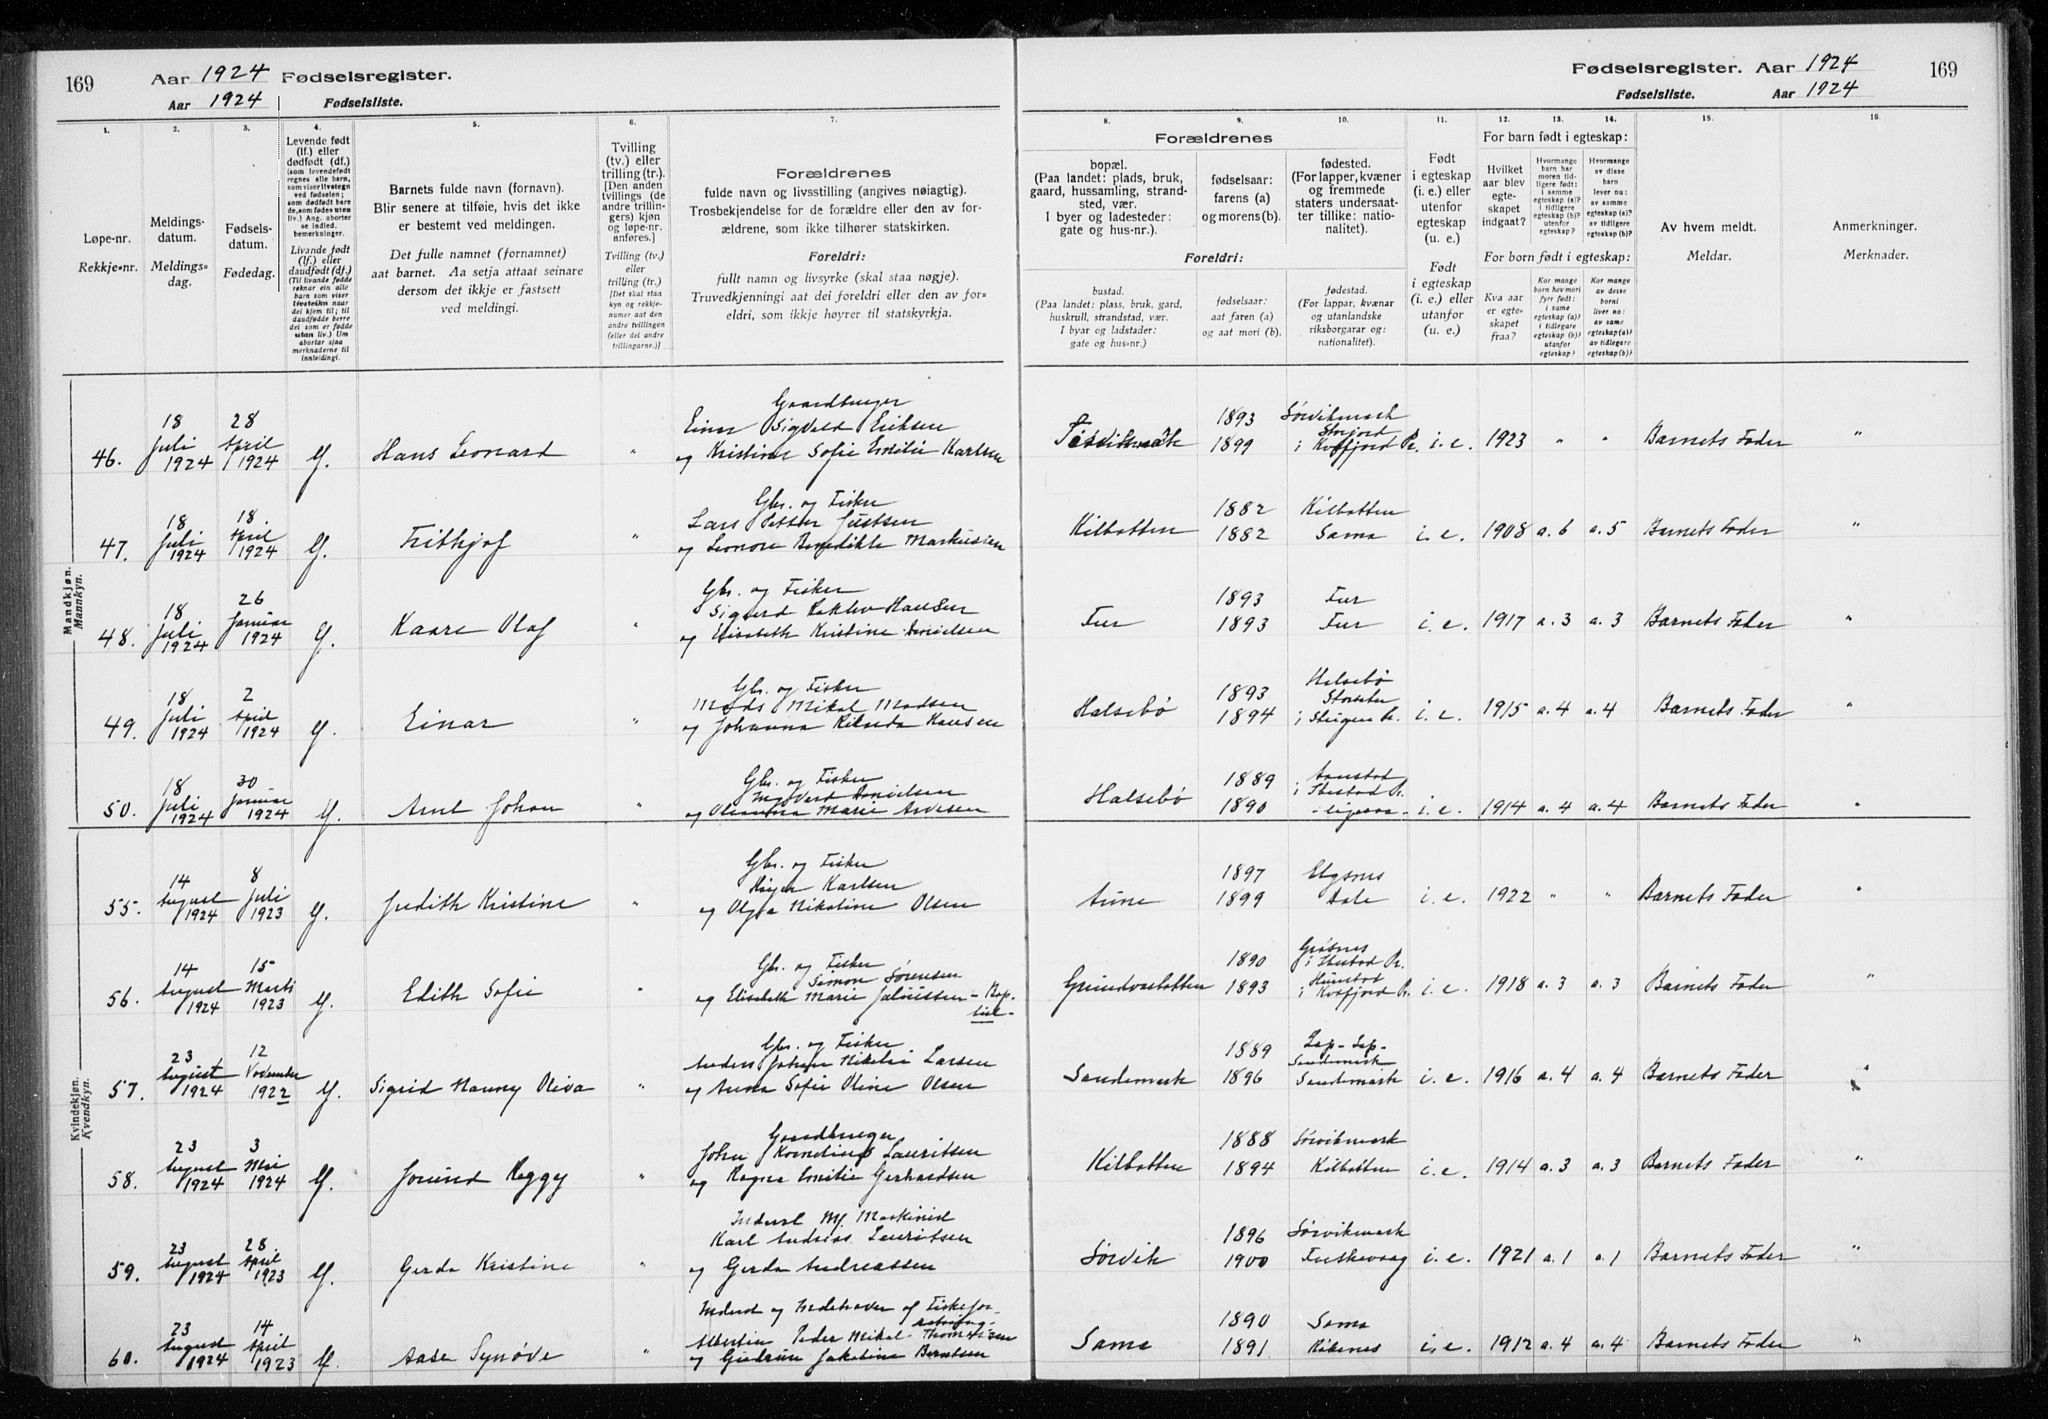 169 Aar 1924 Fødselsregister.
Aar 1924 Fødselsliste.
Fødselsregister. Aar 1924 169
Fødselsliste. Aar 1924
1. Løpe-nr. Rekkje-nr.
2. Meldings-datum. Meldings-dag.
3. Fødsels-datum. Fødedag.
4. Levende født
(lf.) eller
dødfødt (df.)
(som levendefødt
regnes alle barn,
som viser livstegn
ved fødselen;
som dødfødt barn
de, som fødes uten
liv.) Ang. aborter
se indled.
bemerkninger.
Livande født
(lf.) eller
daudfødt (df.)
(Til livande fødde
reknar ein alle
barn som viser
livsteikn naar
dei kjem til; til
daudfødde berre
dei som er fødde
utan liv.) Um
abortar sjaa
merknaderne til
innleiding!
5. Barnets fulde navn (fornavn).
Blir senere at tilføie, hvis det ikke
er bestemt ved meldingen.
Det fulle namnet (fornamnet)
aat barnet. Aa setja attaat seinare
dersom det ikkje er fastsett
ved meldingi.
6. Tvilling
(tv.) eller
trilling (tr.).
[Den anden
tvillings (de
andre trillin-
gers) kjøn
og løpe-nr.
anføres.]
Tvilling (tv.)
eller
trilling (tr.)
[Det skal staa
kyn og rekkje-
numer aat den
andre tvillingen
(eller dei andre
trillingarne.)]
7. Forældrenes
fulde navn og livsstilling (angives nøiagtig).
Trosbekjendelse for de forældre eller den av for-
ældrene, som ikke tilhører statskirken.
Foreldri:
fullt namn og livsyrke (skal staa nøgje).
Truvedkjenningi aat dei foreldri eller den av for-
eldri, som ikkje høyrer til statskyrkja.
Forældrenes
8. bopæl.
(Paa landet: plads, bruk,
gaard, hussamling, strand-
sted, vær.
I byer og ladesteder:
gate og hus-nr.).
9. fødselsaar:
farens (a)
og morens (b).
10. fødested.
(For lapper, kvæner
og fremmede
staters undersaat-
ter tillike: natio-
nalitet).
Foreldri:
bustad.
(Paa landet: plass, bruk, gard,
huskrull, strandstad, vær.
I byar og ladstader:
gate og hus-nr.)
fødselsaar:
aat faren (a)
og aat mori (b).
fødestad.
(For lappar, kvænar
og utanlandske
riksborgarar og:
nationalitet).
11. Født
i egteskap
(i. e.) eller
utenfor
egteskap
(u. e.)
Født
i egteskap
(i. e.) eller
utanfor
(u. e.).
For barn født i egteskap:
12. Hvilket
aar blev
egte-
skapet
indgaat?
13. Hvormange
barn har
moren tid-
ligere født:
i samme
egteskap (a)?
i tidligere
egteskap (b)?
utenfor
egteskap?
14. Hvormange
av disse
barn
lever nu:
av samme
egteskap (a)?
av tidligere
egteskap (b)?
For born født i egteskap:
Kva aar
er egte-
skapet
fraa?
Kor mange
born hev mori
fyrr født:
i same
egteskap (a)
i tidlegare
egteskap (b)?
utanfor
egteskap?
Kor mange
av desse
borni
liver no:
av same
egteskap (a)?
av tidlegare
egteskap (b)?
15. Av hvem meldt. Meldar.
16. Anmerkninger. Merknader.
Mandkjøn. Mannkyn.
46. 18 Juli 1924 28 April 1924 lf. Hans Leonard " Gaardbruger
Einar Sigvald Eriksen
og Kristine Sofie Emilie Karlsen
1893 Sørvikmark
1899 Storjord i Kvæfjord Pr. i. e. 1923 " " Barnets Fader "
47. 18 Juli 1924 18 April 1924 lf. Frithjof " Gbr. og Fisker
Lars Petter Justsen
og Leonore Benedikte Markussen
Kilbotten 1882 Kilbotten
1882 Sama i. e. 1908 a. 6 a. 5 Barnets Fader "
48. 18 Juli 1924 26 Januar 1924 lf. Kaare Olaf " Gbr. og Fisker
Sigurd Hansen
og Elisabeth Kristine Danielsen
Fur 1893 Fur
1893 Fur i. e. 1917 a. 3 a. 3 Barnets Fader "
49. 18 Juli 1924 2 April 1924 lf. Einar " Gbr. og Fisker
Mads Mikal Madsen
og Johanna Hansen
Halsebø 1893 Halsebø
1894 i Steigen Pr. i. e. 1915 a. 4 a. 4 Barnets Fader "
50. 18 Juli 1924 30 Januar 1924 lf. Arnt Johan " Gbr. og Fisker
Ingvard Danielsen
og Marie
Halsebø 1889 Aanstad i Ibestad Pr.
1890 - ligesaa - i. e. 1914 a. 4 a. 4 Barnets Fader "
Kvindekjøn. Kvendkyn.
55. 14 August 1924 8 Juli 1923 lf. Judith Kristine " Gbr. og Fisker
Karlsen
og Olga Nikoline Olsen
Aune 1897 Elgsnes
1899 Dale i. e. 1922 " " Barnets Fader "
56. 14 August 1924 15 Marts 1923 lf. Edith Sofie " Gbr. og Fisker
Simon Sørensen
og Elisabeth Marie Jakobsen - Baptist -
Grundvasbotten 1890 Grøsnes i Ibestad Pr.
1893 Hunstad i Kvæfjord Pr. i. e. 1918 a. 3 a. 3 Barnets Fader "
57. 23 August 1924 12 November 1922 lf. Sigrid Nanny Oliva " Gbr. og Fisker
Anders Johan Nikolai Larsen
og Anna Sofie Oline Olsen
Sandemark 1889 Lap - Lap - Sandemark
1896 Sandemark i. e. 1916 a. 4 a. 4 Barnets Fader "
58. 23 August 1924 3 Mai 1924 lf. Jorund Reggy " Gaardbruger
John Kornelius Lauritsen
og Ragna Emilie Gerhardsen
Kilbotten 1888 Sørvikmark
1894 Kilbotten i. e. 1914 a. 3 a. 3 Barnets Fader "
59. 23 August 1924 28 April 1923 lf. Gerda Kristine " Inderst Mf. Maskinist
Karl Andreas Lauritsen
og Gerda Andreassen
Sørvik 1896 Sørvikmark
1900 Fuskevaag i. e. 1921 a. 1 a. 1 Barnets Fader "
60. 23 August 1924 14 April 1923 lf. Aase Synøve " Inderst og Indehaver af Fiskeforretning -
Albertin Peder Mikal Thomassen
og Gudrun Jakobine Berntsen
Sama 1890 Sama
1891 Røkenes i. e. 1912 a. 4 a. 4 Barnets Fader "